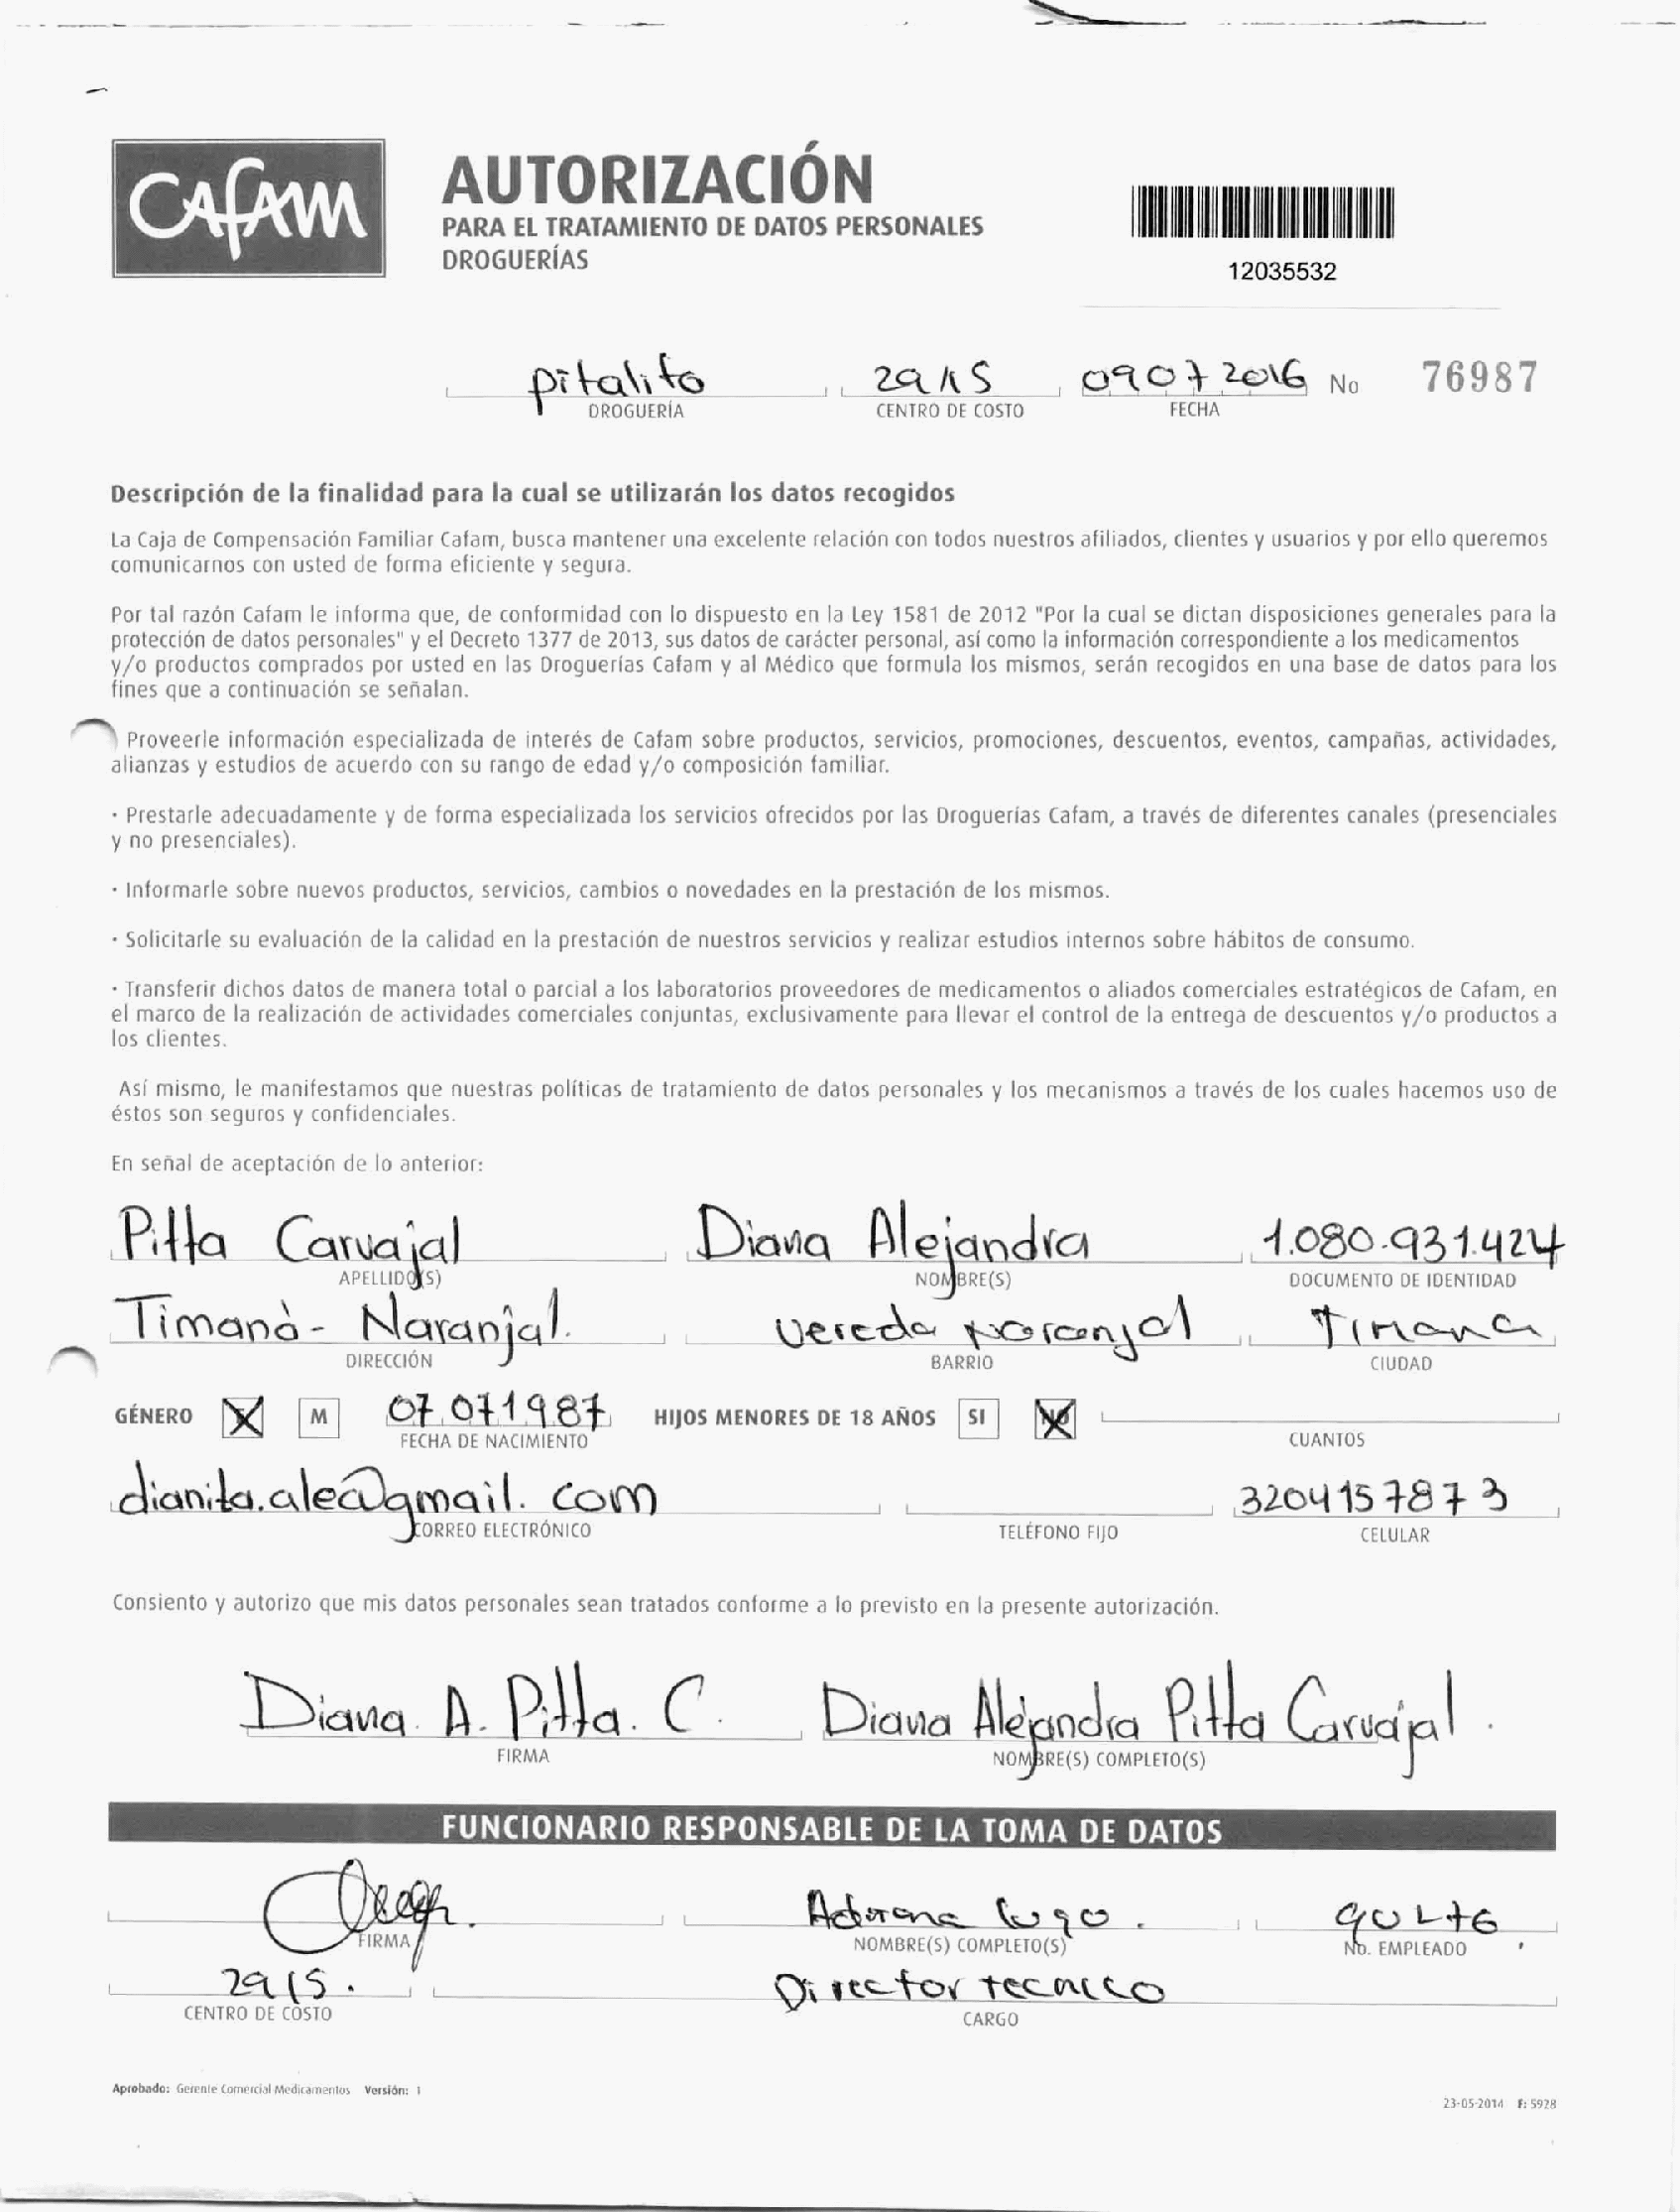 CAFAM
AUTORIZACIÓN
PARA EL TRATAMIENTO DE DATOS PERSONALES
DROGUERÍAS
12035532
pitalito 2915 09072016 No 76987
DROGUERÍA CENTRO DE COSTO FECHA
Descripción de la finalidad para la cual se utilizarán los datos recogidos
La Caja de Compensación Familiar Cafam, busca mantener una excelente relación con todos nuestros afiliados, clientes y usuarios y por ello queremos
comunicarnos con usted de forma eficiente y segura.
Por tal razón Cafam le informa que, de conformidad con lo dispuesto en la Ley 1581 de 2012 "Por la cual se dictan disposiciones generales para la
protección de datos personales" y el Decreto 1377 de 2013, sus datos de carácter personal, así como la información correspondiente a los medicamentos
y/o productos comprados por usted en las Droguerías Cafam y al Médico que formula los mismos, serán recogidos en una base de datos para los
fines que a continuación se señalan.
Proveerle información especializada de interés de Cafam sobre productos, servicios, promociones, descuentos, eventos, campañas, actividades,
alianzas y estudios de acuerdo con su rango de edad y/o composición familiar.
· Prestarle adecuadamente y de forma especializada los servicios ofrecidos por las Droguerías Cafam, a través de diferentes canales (presenciales
y no presenciales).
· Informarle sobre nuevos productos, servicios, cambios o novedades en la prestación de los mismos.
· Solicitarle su evaluación de la calidad en la prestación de nuestros servicios y realizar estudios internos sobre hábitos de consumo.
· Transferir dichos datos de manera total o parcial a los laboratorios proveedores de medicamentos o aliados comerciales estratégicos de Cafam, en
el marco de la realización de actividades comerciales conjuntas, exclusivamente para llevar el control de la entrega de descuentos y/o productos a
los clientes.
Así mismo, le manifestamos que nuestras políticas de tratamiento de datos personales y los mecanismos a través de los cuales hacemos uso de
éstos son seguros y confidenciales.
En señal de aceptación de lo anterior:
Pitta Carvajal Diana Alejandra 1.080.931.424
APELLIDO(S) NOMBRE(S) DOCUMENTO DE IDENTIDAD
Timanà - Naranjal. Vereda Naranjal Timana
DIRECCIÓN BARRIO CIUDAD
GÉNERO F M 07071987 HIJOS MENORES DE 18 AÑOS SI NO
FECHA DE NACIMIENTO CUANTOS
dianita.ale@gmail.com 3204157873
CORREO ELECTRÓNICO TELÉFONO FIJO CELULAR
Consiento y autorizo que mis datos personales sean tratados conforme a lo previsto en la presente autorización.
Diana A. Pitta. C. Diana Alejandra Pitta Carvajal.
FIRMA NOMBRE(S) COMPLETO(S)
FUNCIONARIO RESPONSABLE DE LA TOMA DE DATOS
Adriana Lugo.
FIRMA NOMBRE(S) COMPLETO(S) No. EMPLEADO
2915. Director tecnico
CENTRO DE COSTO CARGO
Aprobado: Gerente Comercial Medicamentos Versión: 1
23-05-2014 F: 5928